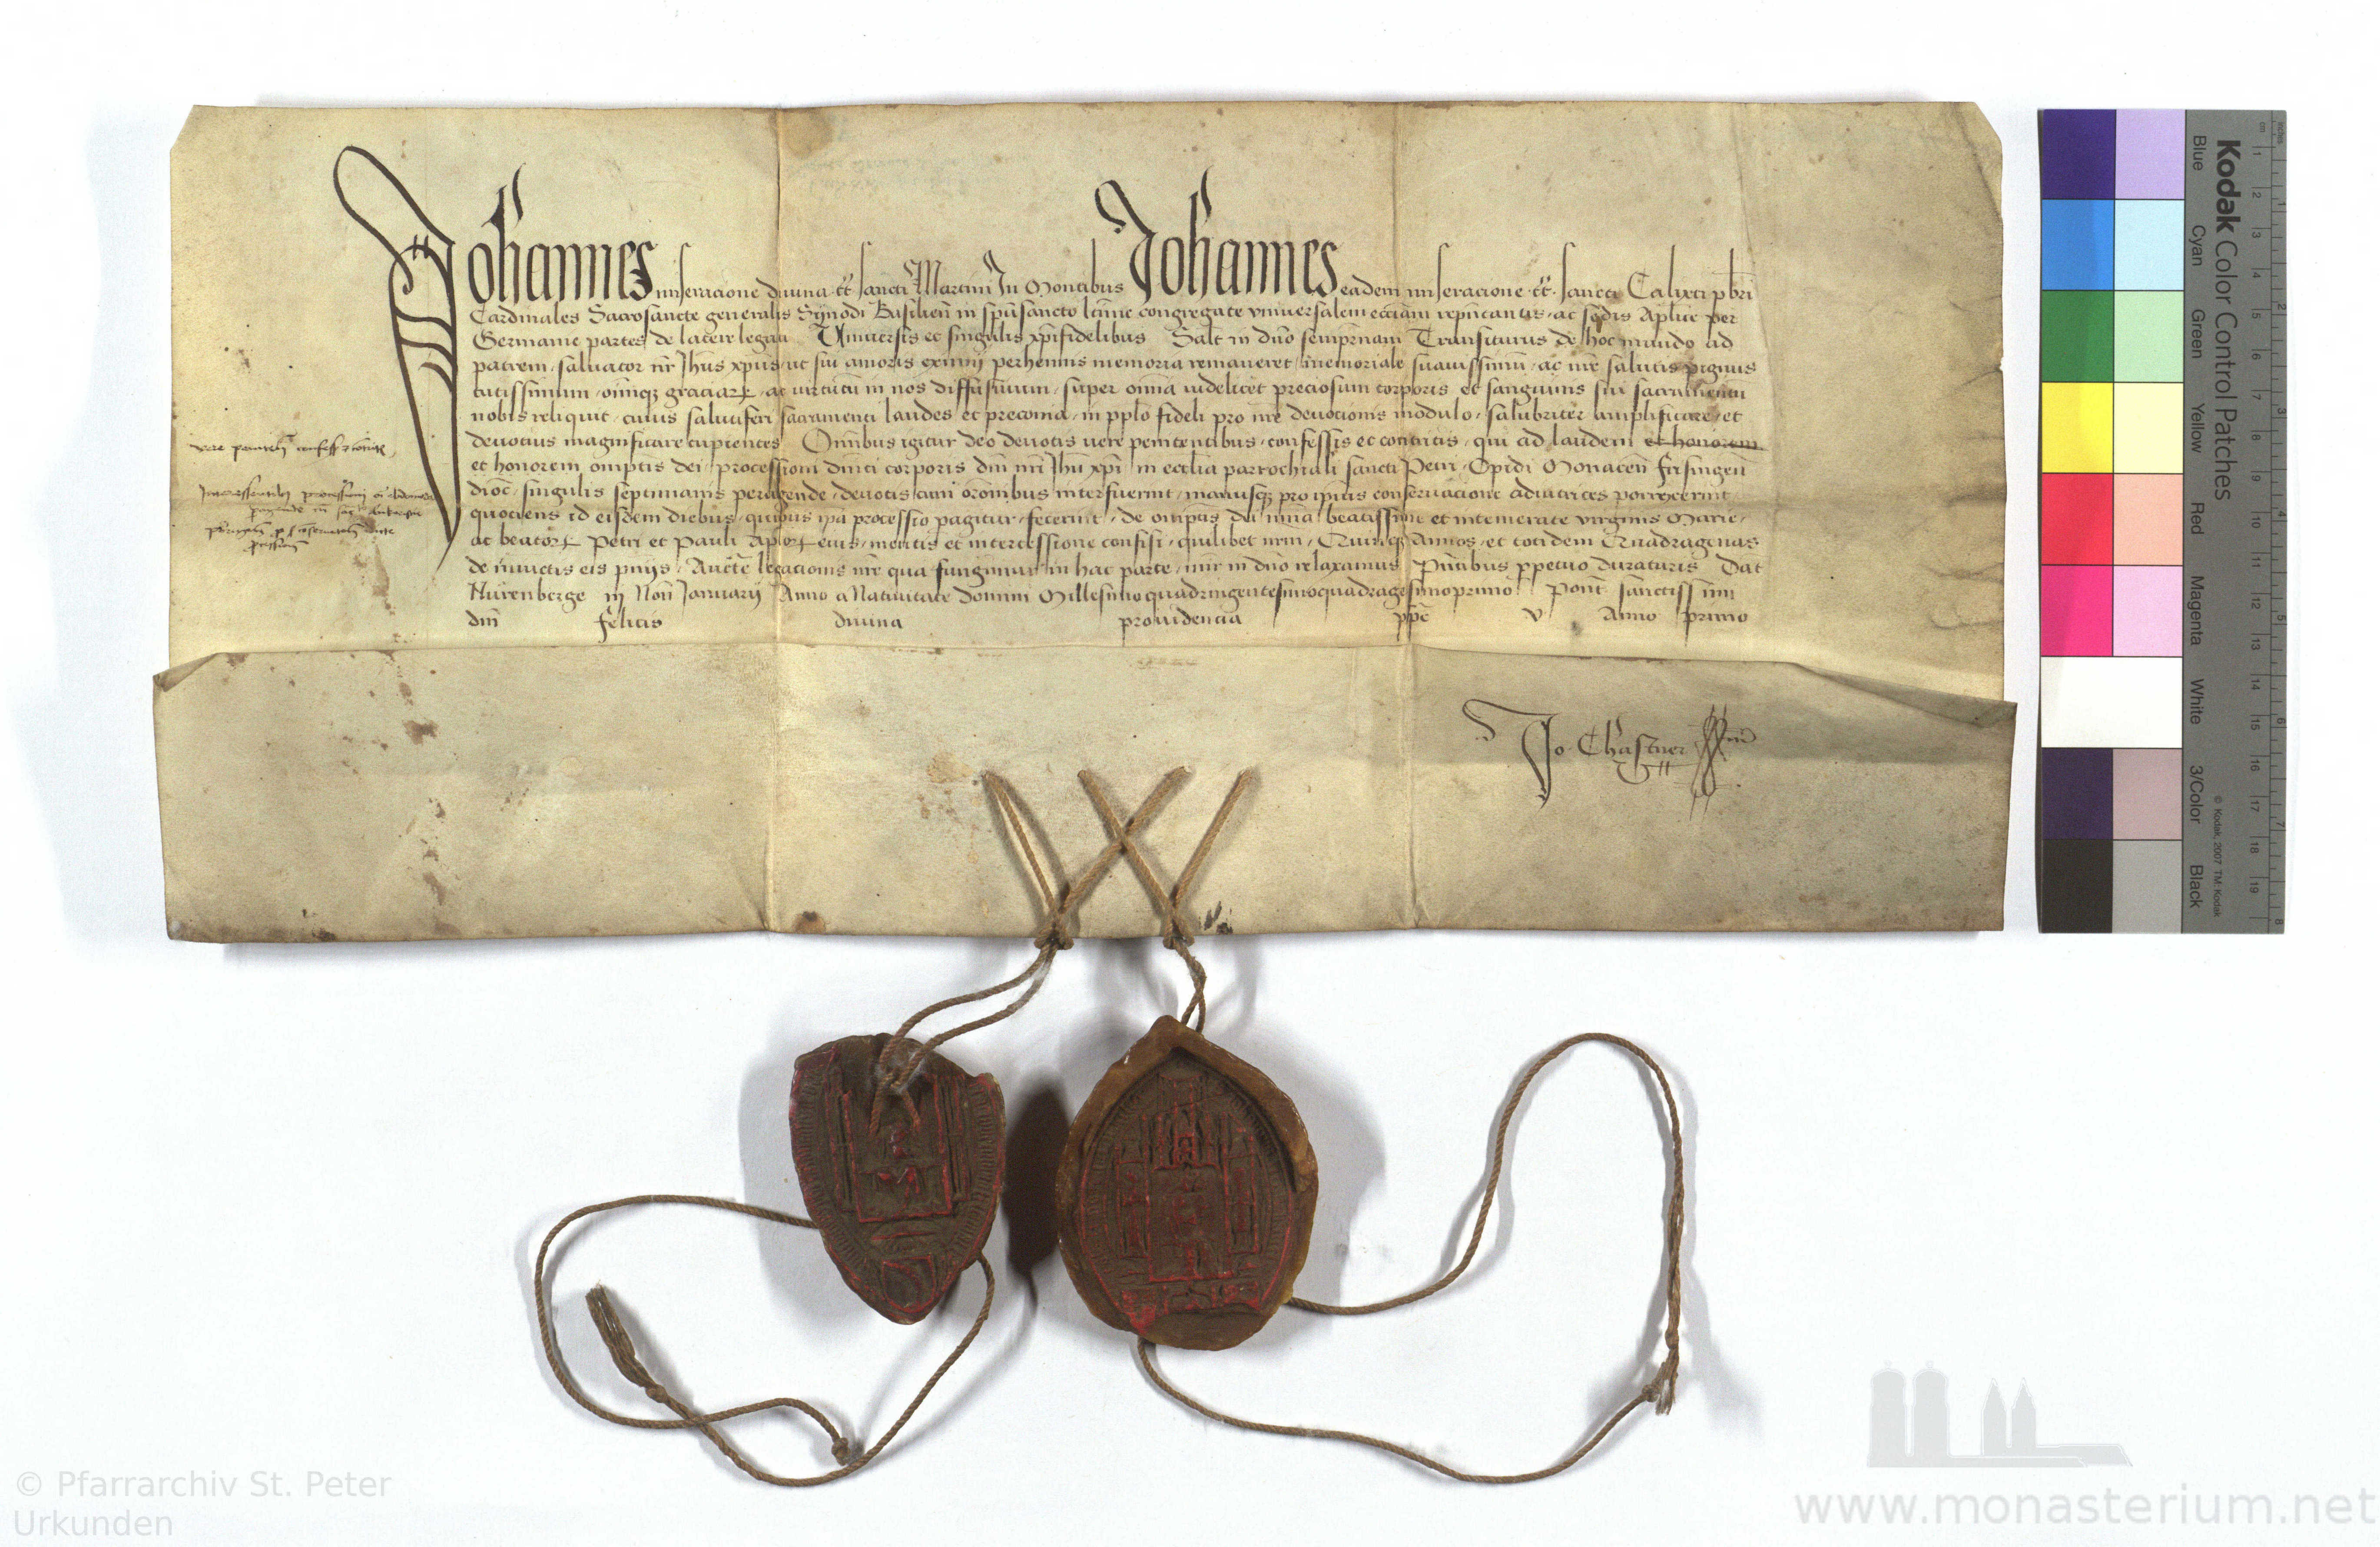 Johannes miseracione diuina tt̃ sancti Martini In Montibus Johannes eadem miseracione tt̃ sancti Calixti pb̃ri
Cardinales Sacrosancte generalis Synodi Basilien̄ in sp̃usancto l̃time congregate vniuersalem ecc̃iam rep̃ntantis ac sedis Ap̃lice per
Germanie partes de latere legati Vniuersis et singulis xp̃ifidelibus Salt̃ in dño sempit̃nam Transiturus de hoc mundo ad
patrem saluator nr̃ Jhũs xp̃us ut sui amoris eximij perhennis memoria remaneret memoriale suauissimũ ac nr̃e salutis pignus
tutissimum om̃iq̃ graciarꝝ ac uirtutũ in nos diffusiuum super om̃ia uidelicet preciosum corporis et sanguinis sui sacramentũ
nobis reliquit cuius saluiferi sacramenti laudes et preconia in pp̃lo fideli pro nr̃e deuocionis modulo salubriter amplificare et
deuocius magnificare cupientes Om̃ibus igitur deo deuotis uere penitentibus confessis et contritis qui ad laudem et honorem
et honorem om̃ptis dei processioni diuini corporis dñi nr̃i Jhũ xp̃i in ecc̃lia parrochiali sancti Petri Opidi Monacen̄ Frisingen̄
dioc̃ singulis septimanis peragende deuotis cum or̃onibus interfuerint manusq̃ pro ip̃ius conseruacione adiutrices porrexerint
quociens id eisdem diebus quibus ip̃a processio pagitur fecerint de om̃ptis dei mĩa beatissime et intemerate virginis Marie
ac beatorꝝ Petri et Pauli Ap̃lorꝝ eius meritis et intercessione confisi quilibet nr̃m Quinq̃ Annos et totidem Quadragenas
de iniunctis eis pñijs Auct̃e legacionis nr̃e qua fungimur in hac parte mĩr in dño relaxamus Pñtibus ꝑpetuo duraturis Dat̃
Nũrenberge iij Noñ Januarij Anno a Natiuitate domini Millesimoquadringentesimoquadragesimoprimo Pont̃ sanctissimi
dñi felicis diuina prouidencia pp̃e v Anno primo
vere penitentibus confess̃ et contritis
Jo Chastner
Kodak Color Control Patches
Blue Cyan Green Yellow Red Magenta White 3/Color Black
© Kodak, 2007 TM: Kodak
inches 1 2 3 4 5 6 7 8
cm 1 2 3 4 5 6 7 8 9 10 11 12 13 14 15 16 17 18 19
© Pfarrarchiv St. Peter
Urkunden
www.monasterium.net